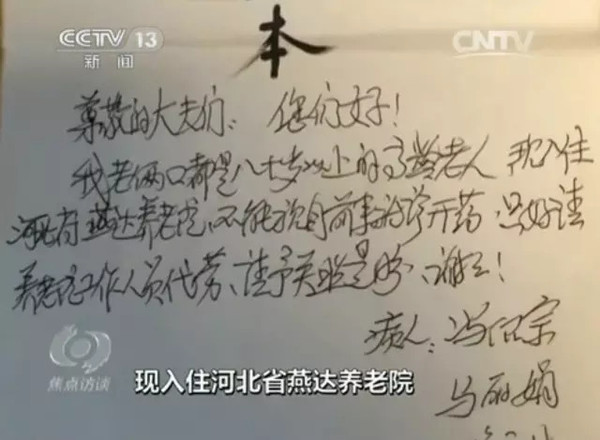 CCTV 13
新闻
CNTV
本
尊敬的大夫们：您们好！
我老俩口都是八十岁以上的高龄老人 现入住
河北省燕达养老院，不能亲自前来诊开药，只好请
养老院工作人员代劳、请予关照是盼、谢谢！
病人：冯
马丽娟
焦点访谈
现入住河北省燕达养老院